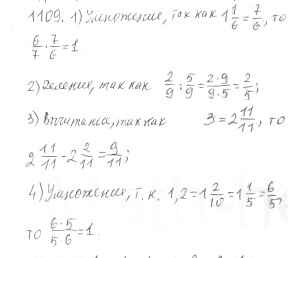 1109. 1) Умножение, так как 1 1/6 = 7/6, то
6/7 · 7/6 = 1
2) Деление, так как 2/9 : 5/9 = 2·9/9·5 = 2/5;
3) Вычитание, так как 3 = 2 11/11, то
2 11/11 - 2 2/11 = 9/11;
4) Умножение, т.к. 1,2 = 1 2/10 = 1 1/5 = 6/5,
то 6·5/5·6 = 1.